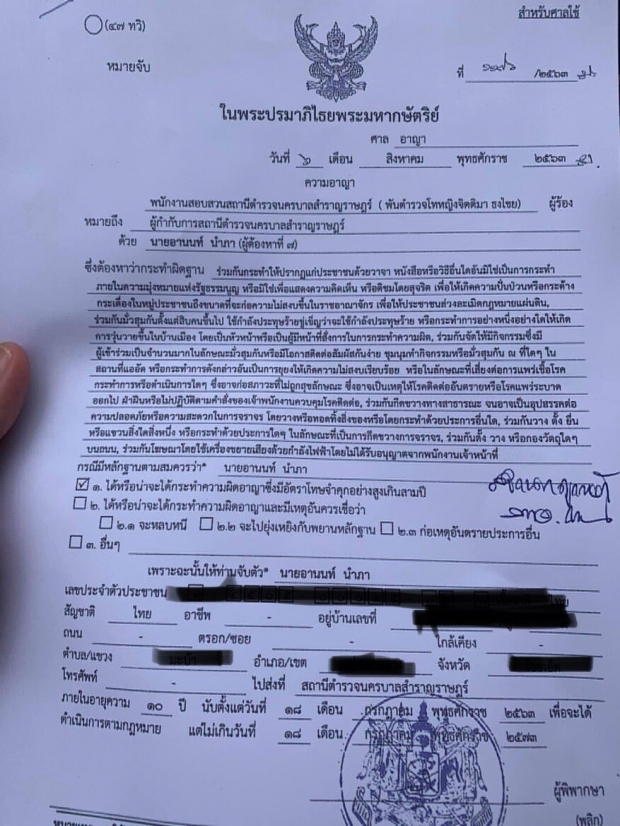 สำหรับศาลใช้
(๔๗ ทวิ)
หมายจับ
ที่ /๒๕๖๓
ในพระปรมาภิไธยพระมหากษัตริย์
ศาล อาญา
วันที่ ๖ เดือน สิงหาคม พุทธศักราช ๒๕๖๓
ความอาญา
พนักงานสอบสวนสถานีตำรวจนครบาลสำราญราษฎร์ (พันตำรวจโทหญิงจิตติมา ธงไชย) ผู้ร้อง
หมายถึง ผู้กำกับการสถานีตำรวจนครบาลสำราญราษฎร์
ด้วย นายอานนท์ นำภา (ผู้ต้องหาที่ ๗)
ซึ่งต้องหาว่ากระทำผิดฐาน ร่วมกันกระทำให้ปรากฏแก่ประชาชนด้วยวาจา หนังสือหรือวิธีอื่นใดอันมิใช่เป็นการกระทำ
ภายในความมุ่งหมายแห่งรัฐธรรมนูญ หรือมิใช่เพื่อแสดงความคิดเห็น หรือติชมโดยสุจริต เพื่อให้เกิดความปั่นป่วนหรือกระด้าง
กระเดื่องในหมู่ประชาชนถึงขนาดที่จะก่อความไม่สงบขึ้นในราชอาณาจักร เพื่อให้ประชาชนล่วงละเมิดกฎหมายแผ่นดิน,
ร่วมกันมั่วสุมกันตั้งแต่สิบคนขึ้นไป ใช้กำลังประทุษร้ายขู่เข็ญว่าจะใช้กำลังประทุษร้าย หรือกระทำการอย่างหนึ่งอย่างใดให้เกิด
การวุ่นวายขึ้นในบ้านเมือง โดยเป็นหัวหน้าหรือเป็นผู้มีหน้าที่สั่งการในการกระทำความผิด, ร่วมกันจัดให้มีกิจกรรมซึ่งมี
ผู้เข้าร่วมเป็นจำนวนมากในลักษณะมั่วสุมกันหรือมีโอกาสติดต่อสัมผัสกันง่าย ชุมนุมทำกิจกรรมหรือมั่วสุมกัน ณ ที่ใดๆ ใน
สถานที่แออัด หรือกระทำการดังกล่าวอันเป็นการยุยงให้เกิดความไม่สงบเรียบร้อย หรือในลักษณะที่เสี่ยงต่อการแพร่เชื้อโรค
กระทำการหรือดำเนินการใดๆ ซึ่งอาจก่อสภาวะที่ไม่ถูกสุขลักษณะ ซึ่งอาจเป็นเหตุให้โรคติดต่ออันตรายหรือโรคแพร่ระบาด
ออกไป ฝ่าฝืนหรือไม่ปฏิบัติตามคำสั่งของเจ้าพนักงานควบคุมโรคติดต่อ, ร่วมกันกีดขวางทางสาธารณะ จนอาจเป็นอุปสรรคต่อ
ความปลอดภัยหรือความสะดวกในการจราจร โดยวางหรือทอดทิ้งสิ่งของหรือโดยกระทำด้วยประการอื่นใด, ร่วมกันวาง ตั้ง ยื่น
หรือแขวนสิ่งใดสิ่งหนึ่ง หรือกระทำด้วยประการใดๆ ในลักษณะที่เป็นการกีดขวางการจราจร, ร่วมกันตั้ง วาง หรือกองวัตถุใดๆ
บนถนน, ร่วมกันโฆษณาโดยใช้เครื่องขยายเสียงด้วยกำลังไฟฟ้าโดยไม่ได้รับอนุญาตจากพนักงานเจ้าหน้าที่
กรณีมีหลักฐานตามสมควรว่า* นายอานนท์ นำภา
๑. ได้หรือน่าจะได้กระทำความผิดอาญาซึ่งมีอัตราโทษจำคุกอย่างสูงเกินสามปี
๒. ได้หรือน่าจะได้กระทำความผิดอาญาและมีเหตุอันควรเชื่อว่า
๒.๑ จะหลบหนี ๒.๒ จะไปยุ่งเหยิงกับพยานหลักฐาน ๒.๓ ก่อเหตุอันตรายประการอื่น
๓. อื่นๆ
เพราะฉะนั้นให้ท่านจับตัว* นายอานนท์ นำภา
เลขประจำตัวประชาชน
สัญชาติ ไทย อาชีพ - อยู่บ้านเลขที่
ถนน - ตรอก/ซอย - ใกล้เคียง -
ตำบล/แขวง อำเภอ/เขต จังหวัด
โทรศัพท์ - ไปส่งที่ สถานีตำรวจนครบาลสำราญราษฎร์
ภายในอายุความ ๑๐ ปี นับตั้งแต่วันที่ ๑๘ เดือน กรกฎาคม พุทธศักราช ๒๕๖๓ เพื่อจะได้
ดำเนินการตามกฎหมาย แต่ไม่เกินวันที่ ๑๘ เดือน กรกฎาคม พุทธศักราช ๒๕๗๓
ผู้พิพากษา
(พลิก)